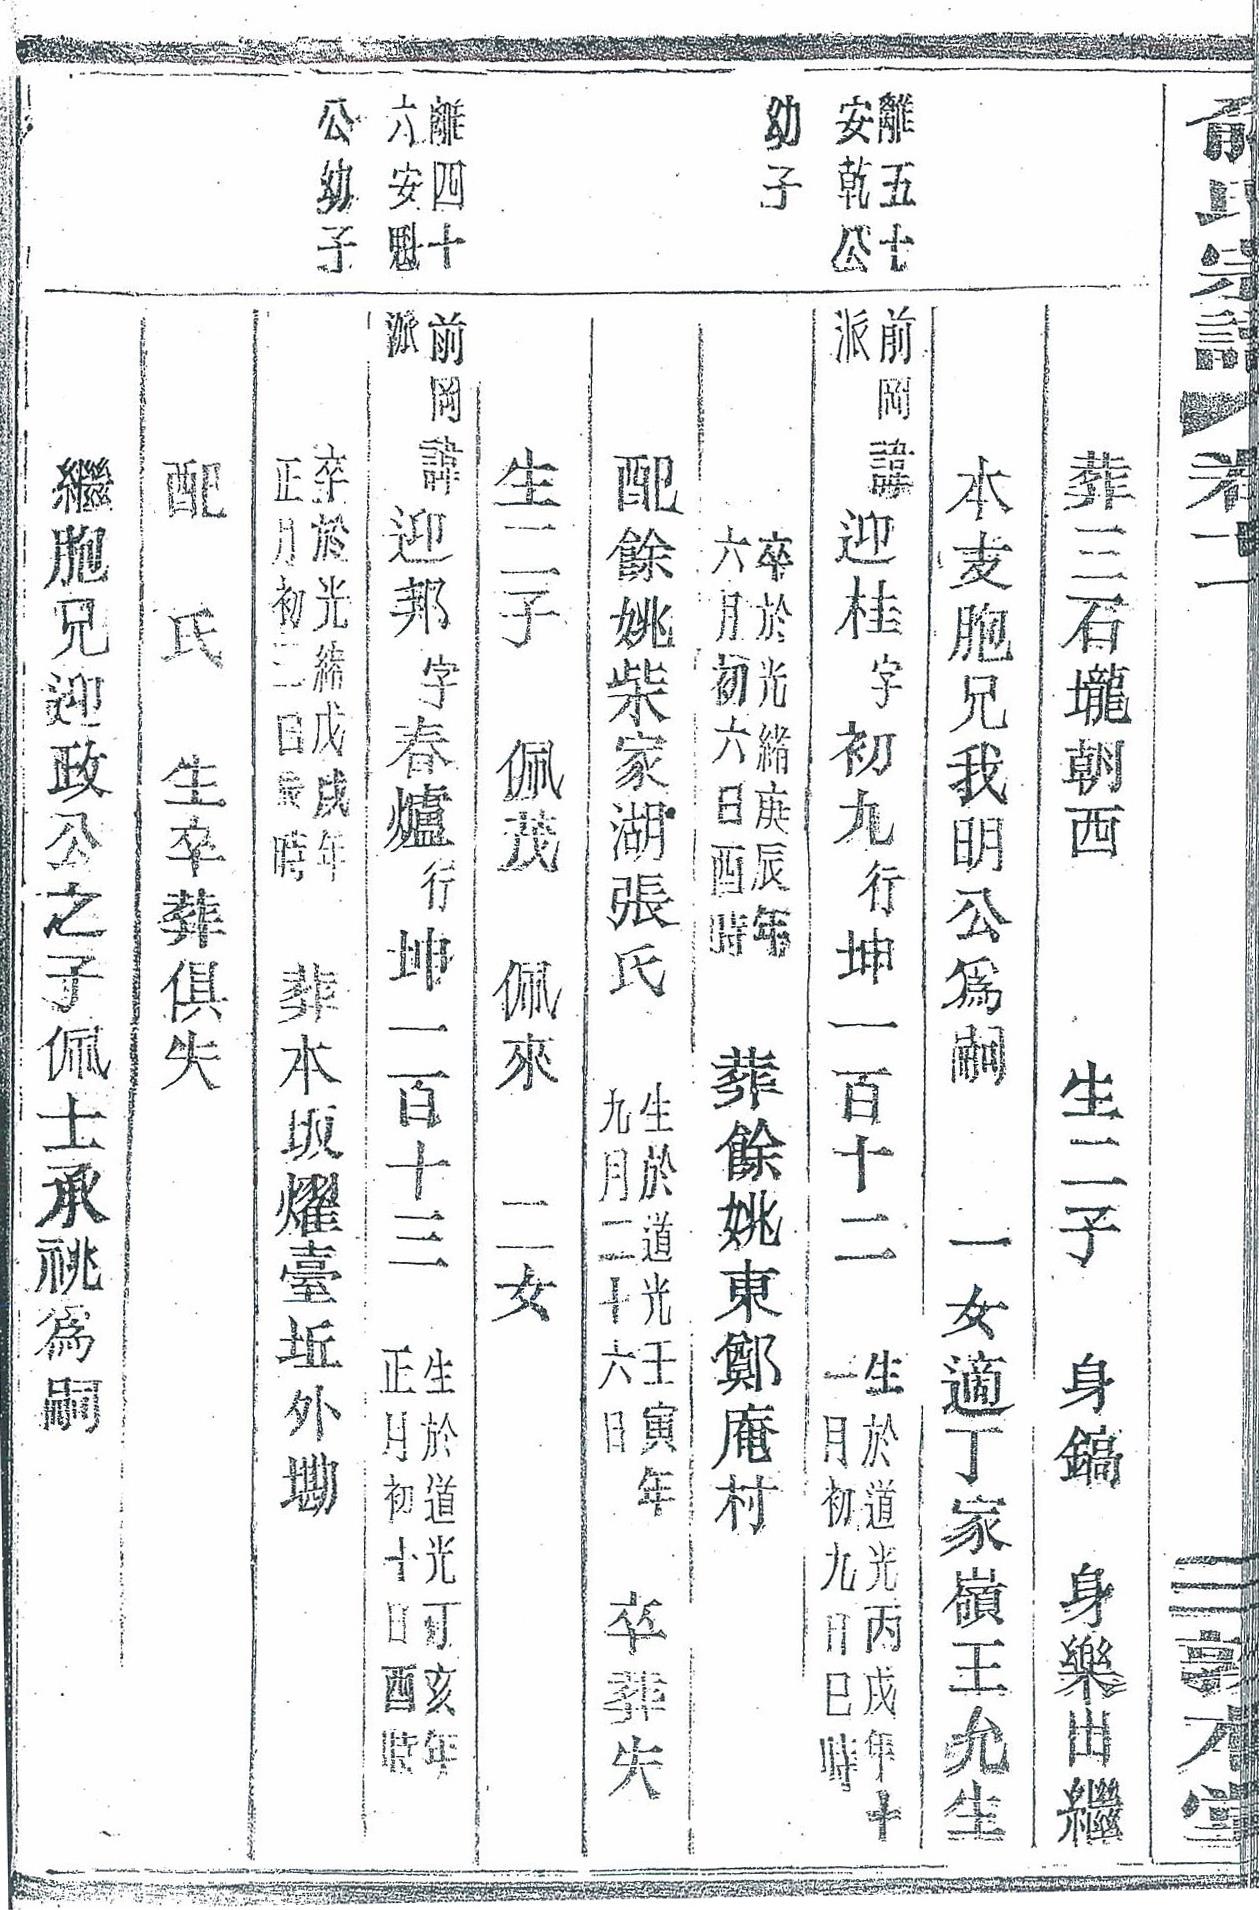 俞氏宗譜 卷二 三 敦本堂
葬三石壠朝西 生二子 身鎬 身樂出繼
本支胞兄我明公爲嗣 一女適丁家嶺王允生
離五十
安乾公
幼子
前岡派諱迎桂字初九行坤一百十二 生於道光丙戌年十
一月初九日巳時
卒於光緒庚辰年
六月初六日酉時 葬餘姚東鄭庵村
配餘姚柴家湖張氏 生於道光壬寅年
九月二十六日 卒葬失
生二子 佩茂 佩來 二女
離四十
六安魁
公幼子
前岡派諱迎邦字春爐行坤一百十三 生於道光丁亥年
正月初十日酉時
卒於光緒戊戌年
正月初二日 時 葬本坂燿臺坵外墈
配 氏 生卒葬俱失
繼胞兄迎政公之子佩士承祧爲嗣